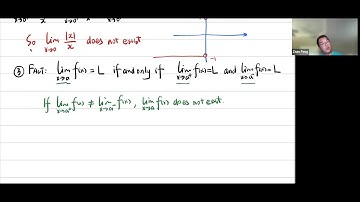 x→0⁺ x x→0⁻
So lim x→0 |x|/x does not exist
-1
③ FACT: lim x→a f(x) = L if and only if lim x→a⁺ f(x) = L and lim x→a⁻ f(x) = L
If lim x→a⁺ f(x) ≠ lim x→a⁻ f(x), lim x→a f(x) does not exist.